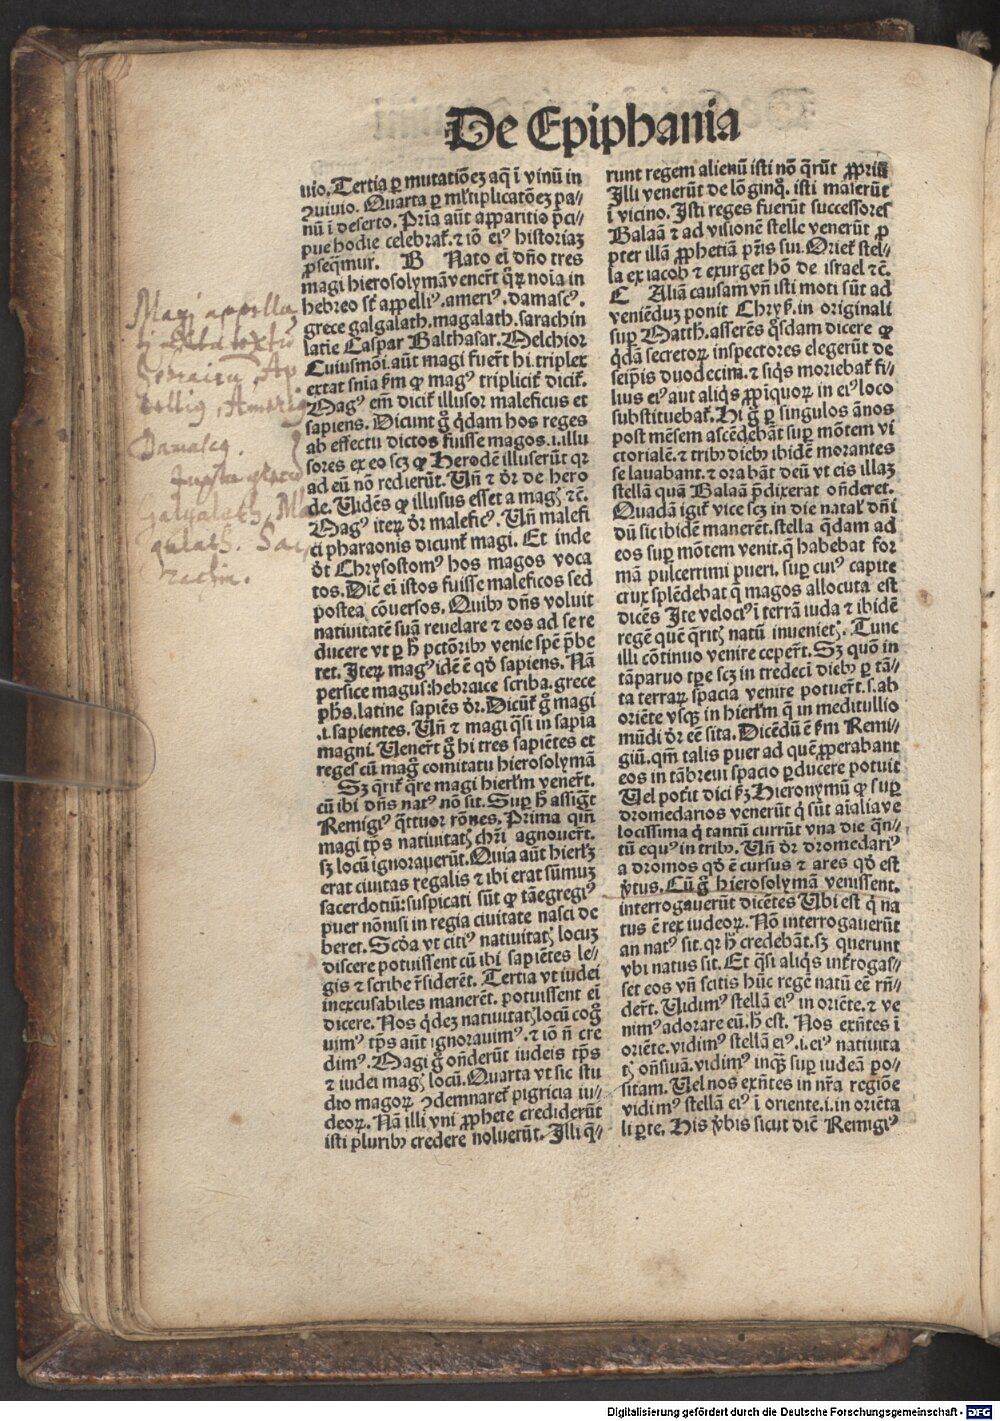 De Epiphania
uio. Tertia ꝑ mutatiōeꝫ aq̄ ī vinū in
ꝯuiuio. Quarta ꝑ mĺtiplicatōeꝫ pa⸗
nū ī deserto. Prīa aūt apparitio p̄ci⸗
pue hodie celebrat̉. ⁊ iō eiꝰ historiaꝫ
ꝓseq̄mur. B Nato eī dn̄o tres
magi hierosolymā vener̄t q̄ꝝ noīa in
hebreo st̄ appelliꝰ. ameriꝰ. damascꝰ.
grece galgalath. magalath. sarachin
latīe Caspar Balthasar. Melchior
Cuiusmōi. aūt magi fuer̄t hi. triplex
extat snīa s̄m ꝙ magꝰ triplicit̉ dicit̉.
Magꝰ em̄ dicit̉ illusor maleficus et
sapiens. Dicunt g̊ q̇dam hos reges
ab effectu dictos fuisse magos .i. illu
sores ex eo scꝫ ꝙ Herodē illuserūt qꝛ
ad eū nō redierūt. Vn̄ ⁊ dr̄ de hero
de. Vidēs ꝙ illusus esset a magꝭ ⁊c̄.
Magꝰ iteꝝ dr̄ maleficꝰ. Vn̄ malefi
ci pharaonis dicunt̉ magi. Et inde
dt̄ Chrysostomꝰ hos magos voca
tos. Dic̄ eī istos fuisse maleficos sed
postea cōuersos. Quibꝫ dn̄s voluit
natiuitatē suā reuelare ⁊ eos ad se re
ducere vt ꝑ h̄ pctōribꝫ venie spē p̄be
ret. Iteꝝ magꝰ idē ē qd̄ sapiens. Nā
persice magus: hebraice scriba. grece
ph̄s. latine sapiēs dr̄. Dicūt̉ g̊ magi
.i. sapientes. Vn̄ ⁊ magi q̄si in sapīa
magni. Vener̄t g̊ hi tres sapiētes et
reges cū mag̊ comitatu hierosolymā
Sꝫ q̄rit̉ q̄re magi hierlm̄ vener̄t.
cū ibi dn̄s natꝰ nō sit. Suꝑ h̄ assig̅t
Remigiꝰ q̄ttuor rōnes. Prima qm̄
magi tp̄s natiuitatꝭ chr̄i agnouer̄t.
sꝫ locū ignorauerūt. Quia aūt hierlꝫ
erat ciuitas regalis ⁊ ibi erat sūmuꝫ
sacerdotiū: suspicati sūt ꝙ tā egregiꝰ
puer nō nisi in regia ciuitate nasci de
beret. Scd̄a vt citiꝰ natiuitatꝭ locuꝫ
discere potuissent cū ibi sapiētes le⸗
gis ⁊ scribe r̄siderēt. Tertia vt iudei
inexcusabiles manerēt. potuissent eī
dicere. Nos q̇deꝫ natiuitatꝭ locū cog̊
uimꝰ tp̄s aūt ignorauimꝰ. ⁊ iō n̄ cre
dimꝰ. Magi g̊ on̄derūt iudeis tp̄s
⁊ iudei magꝭ locū. Quarta vt sic stu
dio magoꝝ ꝯdemnaret̉ pigricia iu⸗
deoꝝ. Nā illi vni ꝓphete crediderūt
isti pluribꝫ credere noluerūt. Illi q̄⸗
runt regem alienū isti nō q̄rūt ꝓpriū
Illi venerūt de lōginq̊. isti māserūt
ī vicino. Isti reges fuerūt successores
Balaā ⁊ ad visionē stelle venerūt ꝓ
pter illā ꝓphetiā pr̄is sui. Oriet̉ stel⸗
la ex iacob ⁊ exurget hō de israel ⁊c̄.
C Aliā causam vn̄ isti moti sūt ad
veniēduꝫ ponit Chryſ. in originali
suꝑ Matth. asserēs q̇sdam dicere ꝙ
q̇dā secretoꝝ inspectores elegerūt de
seip̄is duodecim. ⁊ siq̇s moriebat̉ fi⸗
lius eiꝰ aut aliq̇s ꝓpīquoꝝ in eiꝰ loco
substituebat̉. Hi g̊ ꝑ singulos ānos
post mēsem ascēdebāt suꝑ mōtem vi
ctorialē. ⁊ tribꝫ diebꝫ ibidē morantes
se lauabant. ⁊ orabāt deū vt eis illaꝫ
stellā quā Balaā p̄dixerat on̄deret.
Quadā igit̉ vice scꝫ in die natal̄ dn̄i
dū sic ibidē manerēt. stella q̄dam ad
eos suꝑ mōtem venit. q̄ habebat for
mā pulcerrimi pueri. suꝑ cuiꝰ capite
crux splēdebat q̄ magos allocuta est
dicēs Ite velociꝰ ī terrā iuda ⁊ ibidē
regē quē q̄ritꝭ natū inuenietꝭ. Tunc
illi cōtinuo venire ceper̄t. Sꝫ quō in
tā paruo tꝑe scꝫ in tredecī diebꝫ ꝑ tā⸗
ta terraꝝ spacia venire potuer̄t. s. ab
oriēte vsqꝫ in hierlm̄ q̄ in meditullio
mūdi dr̄ eē sita. Dicēdū ē s̄m Remi⸗
giū. qm̄ talis puer ad quē ꝓperabant
eos in tā breui spacio ꝑducere potuit
Vel pōt dici sꝫ Hieronymū ꝙ suꝑ
dromedarios venerūt q̇ sūt aīalia ve
locissima q̇ tantū currūt vna die q̄n⸗
tū equꝰ in tribꝫ. Vn̄ dr̄ dromedariꝰ
a dromos qd̄ ē cursus ⁊ ares qd̄ est
v̇tus. Cū g̊ hierosolymā venissent.
interrogauerūt dicētes Vbi est q̇ na
tus ē rex iudeoꝝ. Nō interrogauerūt
an natꝰ sit. qꝛ h̄ credebāt. sꝫ querunt
vbi natus sit. Et q̄si aliq̇s int̉rogas⸗
set eos vn̄ scitis hūc regē natū eē rn̄⸗
der̄t. Vidimꝰ stellā eiꝰ in oriēte. ⁊ ve
nimꝰ adorare eū. h̄ est. Nos exn̄tes ī
oriēte. vidimꝰ stellā eiꝰ .i. eiꝰ natiuita
tꝭ on̄siuā. vidimꝰ inqͣꝫ suꝑ iudeā po⸗
sitam. Vel nos exn̄tes in nr̄a regiōe
vidimꝰ stellā eiꝰ ī oriente .i. in oriēta
li ꝑte. His v̇bis sicut dic̄ Remigiꝰ
Magi appella
ti
Hebraicū, Ap
pellig, Amerig
Damascg.
Galgalath, Ma
galath. Sa
rachin.
Digitalisierung gefördert durch die Deutsche Forschungsgemeinschaft - DFG